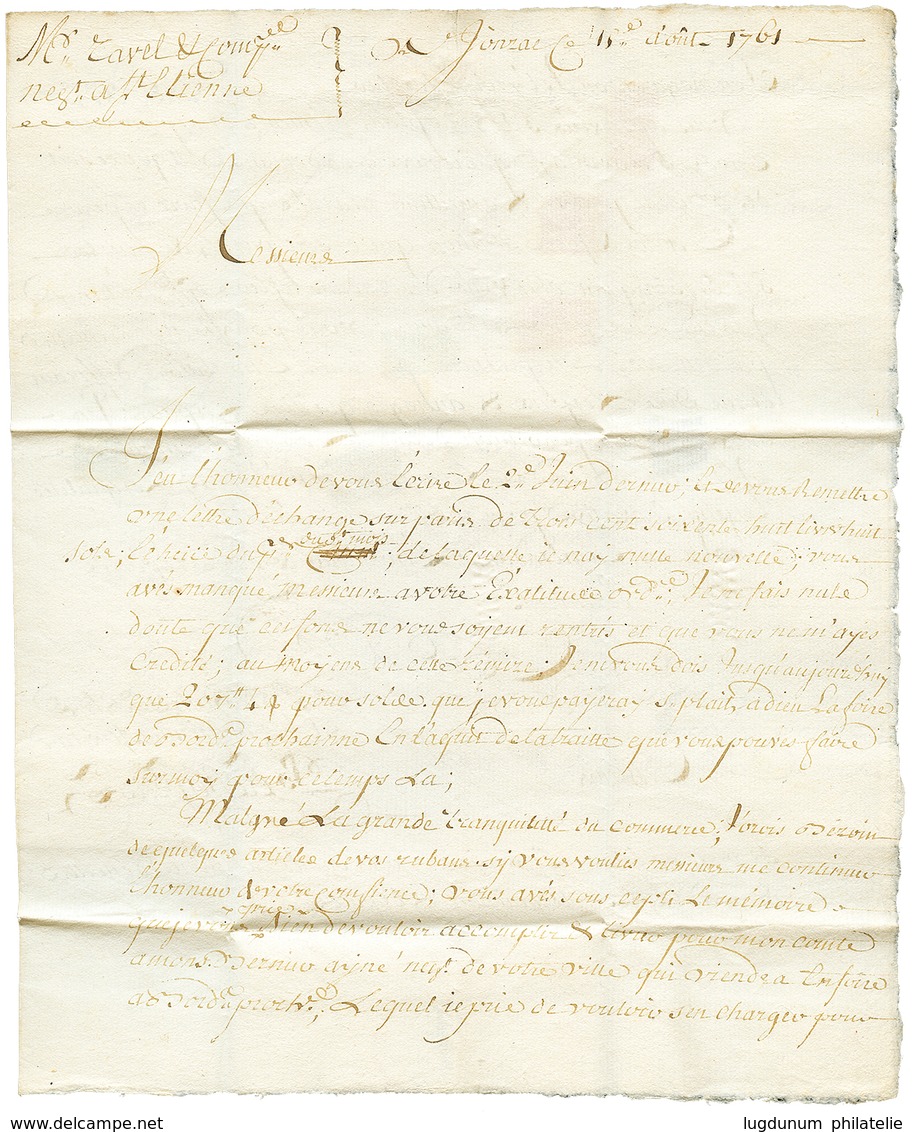 Mrs. Ravel & Compie
negts. a St. Etienne
De Jonzac Ce 11e. d'oût 1761
Messieurs
J'eu L'honneur de vous Ecrire le 2e. Juin dernier; Et de vous Remettre
une lettre d'Echange sur paris de trois cent soixente huit livres huit
sols; du dt. mois de laquelle je n'ay nulle nouvelle; vous
avés manqué Messieurs a votre Exatitude ordre.; Je ne fais nule
doute que ces fonds ne vous soyent rentrés et que vous ne m'ayés
Credité; au moyens de cette rémize; Je ne vous dois Jusqu'aujourd'huy
que pour solde que je vous payeray s'il plait a dieu La foire
de Bordx. prochainne En L'aquit de la traitte que vous pouvés faire
sur moy pour ce temps La;
Malgré La grande tranquilitté du commerce; J'orois Bézoin
de quelques articles de vos rubans sy vous voulies messieurs me continuer
l'honneur de votre confience; vous avés sous cepli Le mémoire
que je vous prie bien de vouloir accomplir & livrer pour mon comte
a mons. Bernier ayné negt. de votre ville qui viendra En foire
a Bordx. proche.; Lequel je prie de vouloir s'en charger pour
lugdunum philatelie